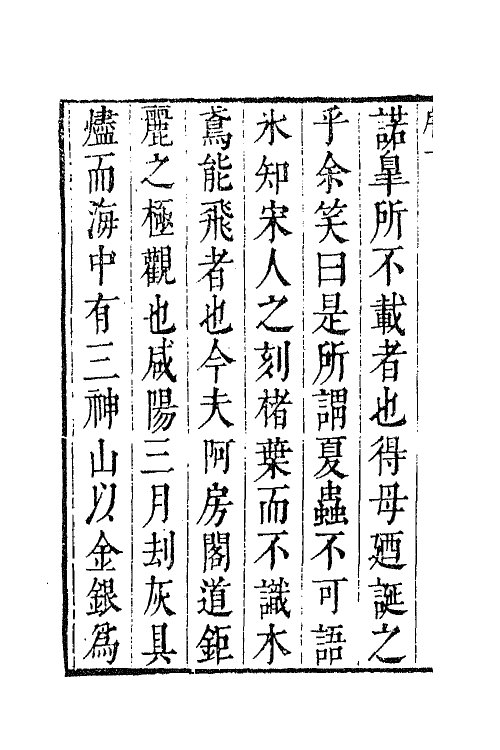 諾臯所不載者也得母廼誕之
乎余笑曰是所謂夏蟲不可語
氷知宋人之刻楮葉而不識木
鳶能飛者也今夫阿房閣道鉅
麗之極觀也咸陽三月刦灰具
燼而海中有三神山以金銀爲